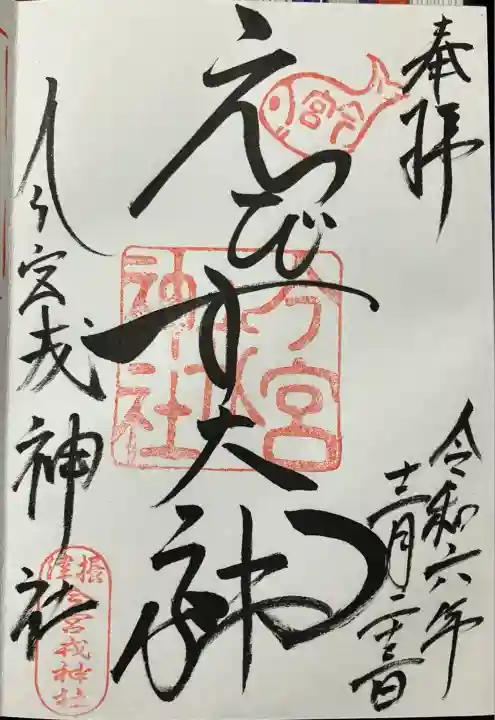 奉拝
今宮
えびす大神
今宮
戎
神社
今宮戎神社
摂津
今宮戎神社
令和六年
十二月二十三日